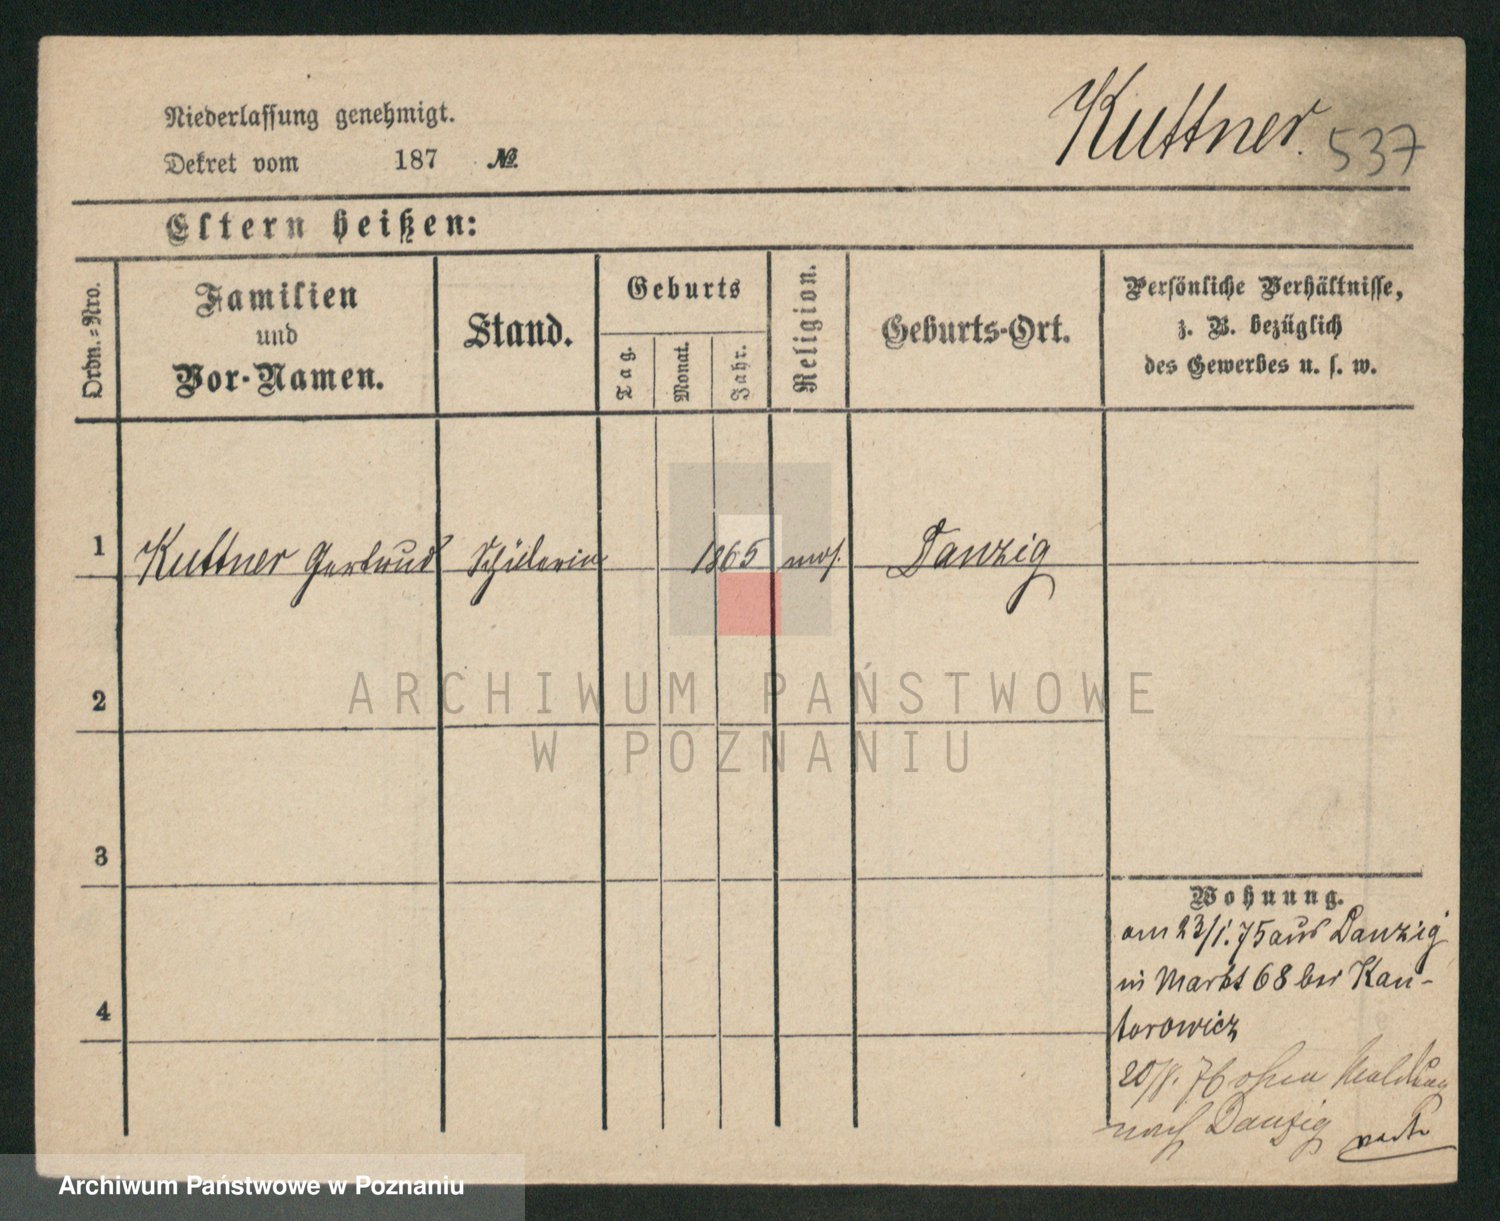 Kuttner. 537
Niederlassung genehmigt.
Dekret vom 187 №
Eltern heißen:
Ordn.-Nro.
Familien
und
Vor-Namen.
Stand.
Geburts
Tag.
Monat.
Jahr.
Religion.
Geburts-Ort.
Persönliche Verhältnisse,
z. B. bezüglich
des Gewerbes u. s. w.
1 Kuttner Gertrud Schülerin 1865 mos. Danzig
2
3
4
Wohnung.
am 23/1. 75 aus Danzig
in Markt 68 bei Kan-
torowicz
76 ohne Meldung
nach Danzig
ARCHIWUM PAŃSTWOWE
W POZNANIU
Archiwum Państwowe w Poznaniu